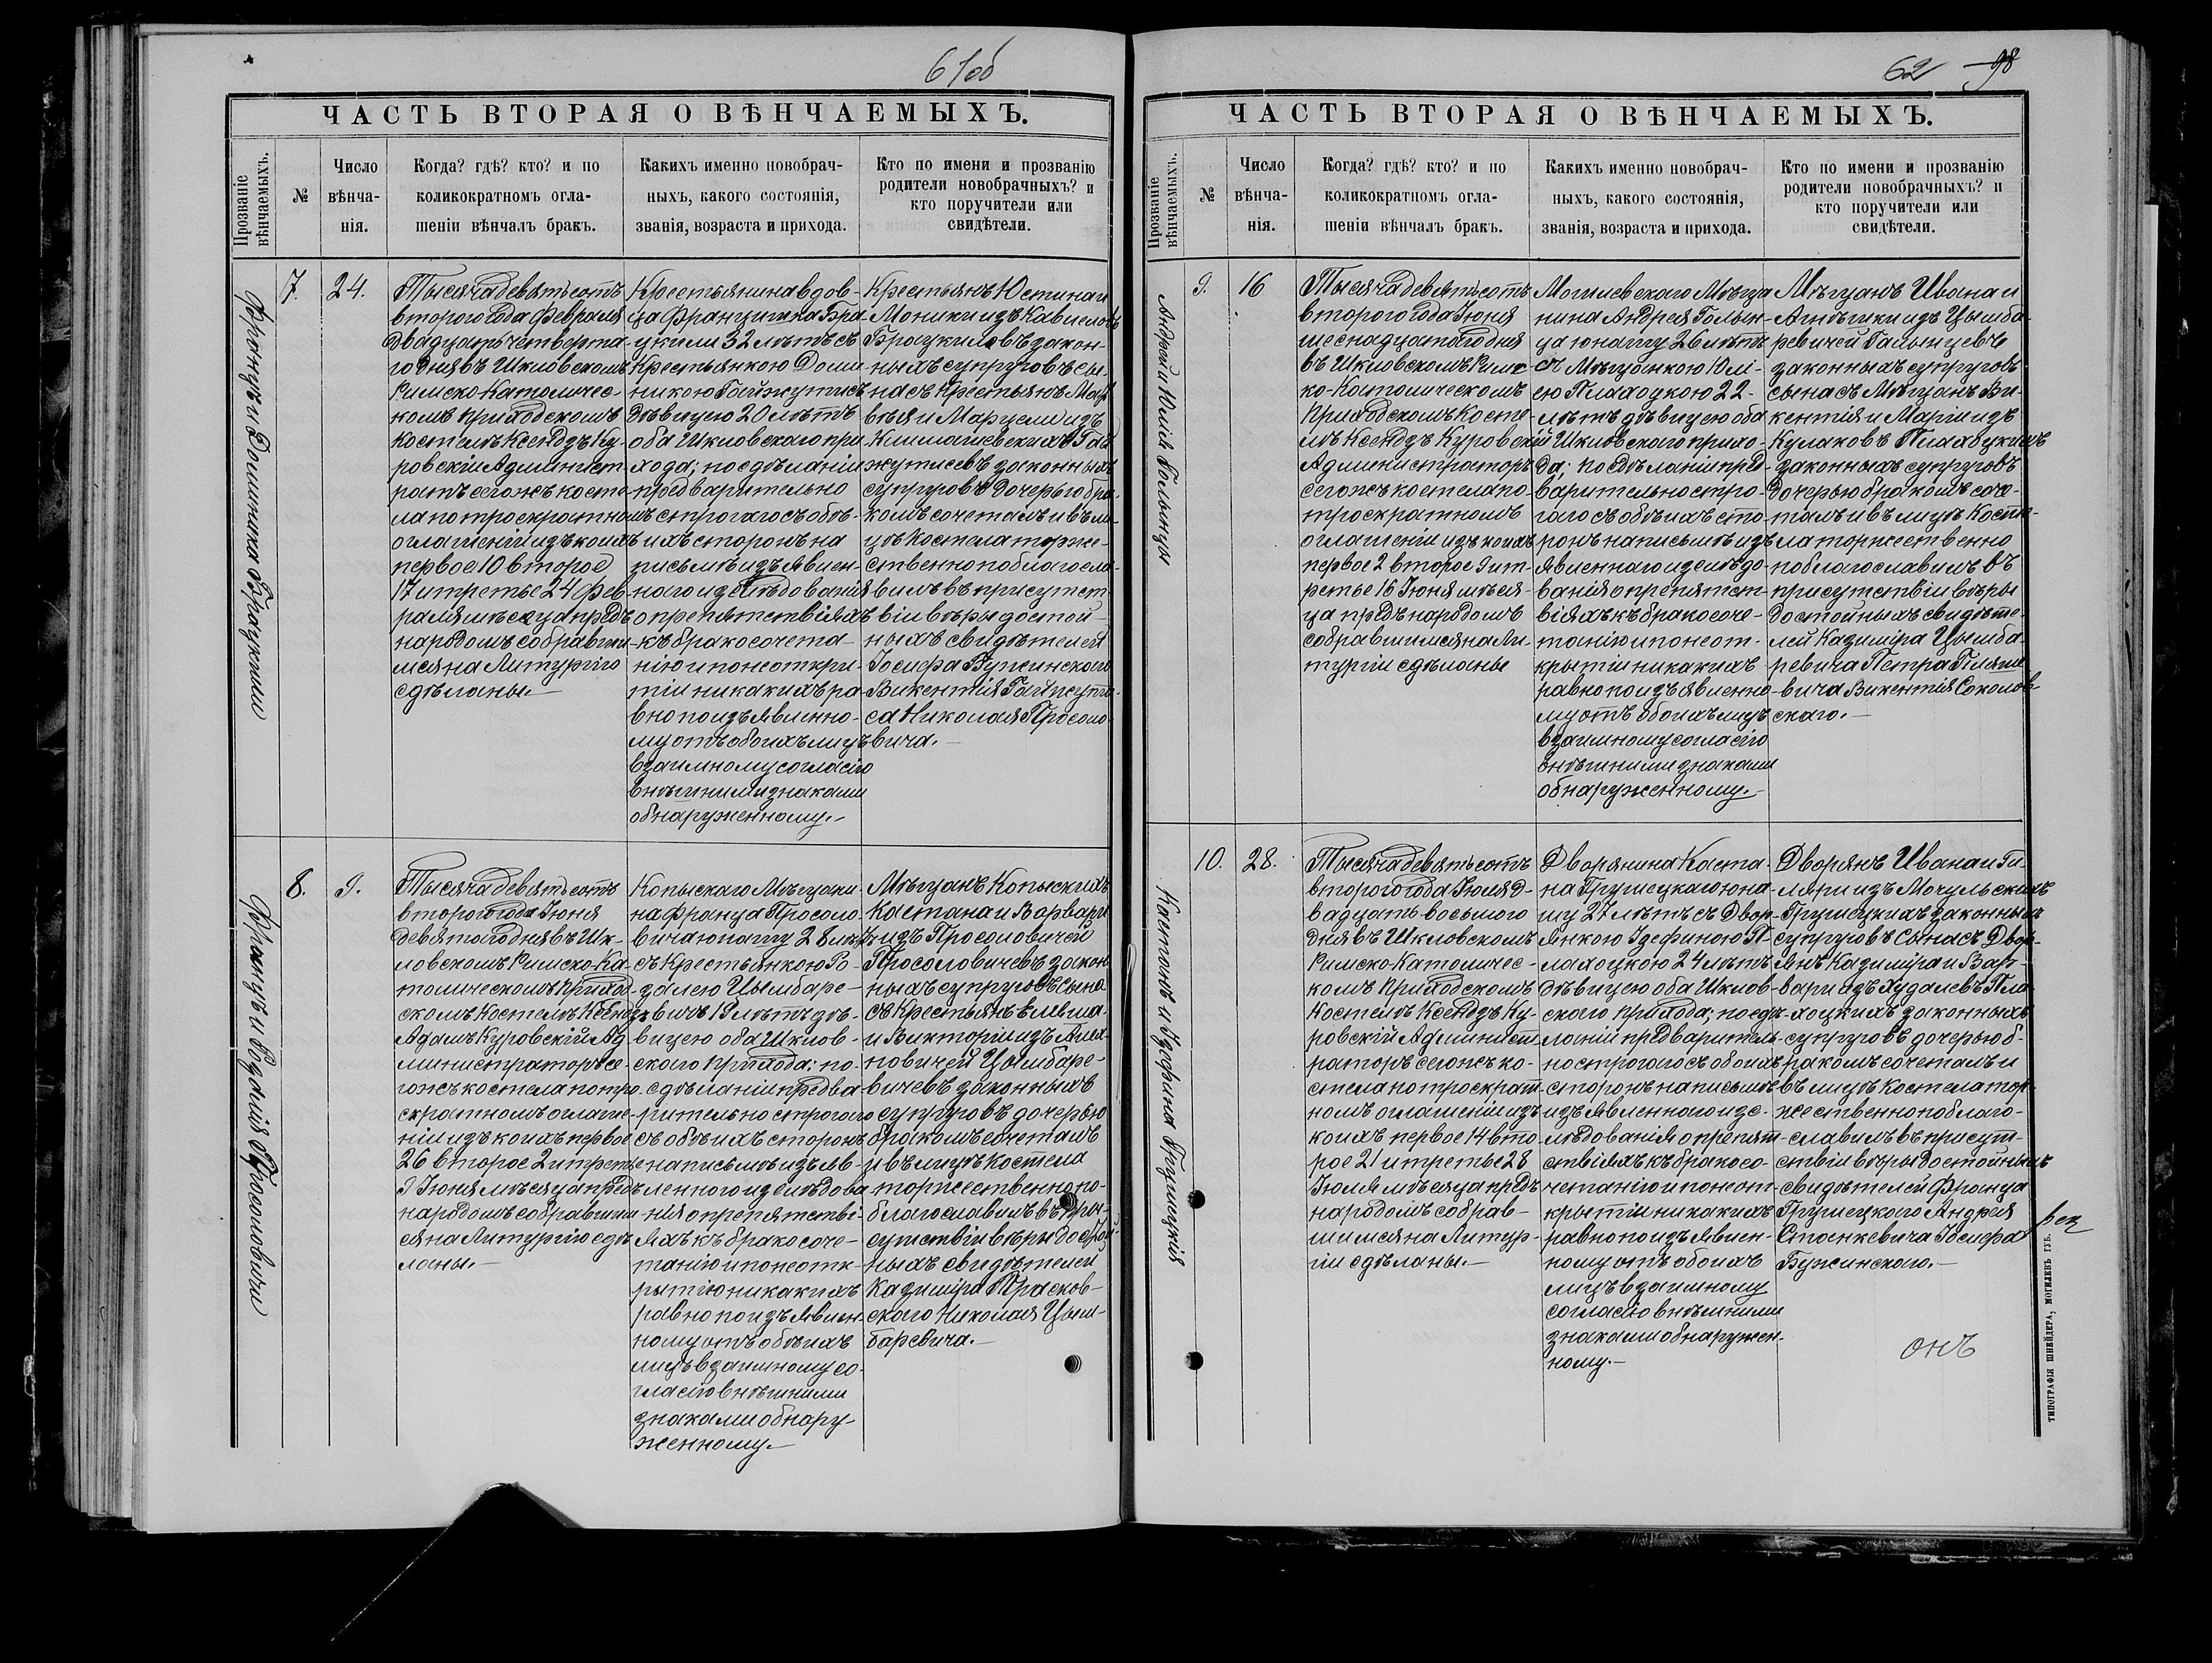 61об
ЧАСТЬ ВТОРАЯ О ВѢНЧАЕМЫХЪ.
Прозваніе вѣнчаемыхъ.
№
Число
вѣнча-
нія.
Когда? гдѣ? кто? и по
коликократномъ огла-
шеніи вѣнчалъ бракъ.
Какихъ именно новобрач-
ныхъ, какого состоянія,
званія, возраста и прихода.
Кто по имени и прозванію
родители новобрачныхъ? и
кто поручители или
свидѣтели.
Францъ и Доминика Брацкили
7.
24.
Тысяча девятьсотъ
второго года Февраля
двадцать четверта-
го дня въ Шкловскомъ
Римско-Католичес-
комъ приходскомъ
Костелѣ Ксендзъ Ку-
ровскій Админист-
раторъ сегожъ косте-
ла по троекратномъ
оглашеніи изъ коихъ
первое 10 второе
17 и третье 24 Фев-
раля мѣсяца предъ
народомъ собравши-
мся на Литургію
сдѣланы.—
Крестьянина вдов-
ца Франциска Бра-
цкили 32 лѣтъ съ
Крестьянкою Доми-
никою Гайжутисъ
дѣвицею 20 лѣтъ
оба Шкловскаго при-
хода; по сдѣланіи
предварительно
строгаго съ обѣ-
ихъ сторонъ на
письмѣ изъявлен-
наго изслѣдованія
о препятствіяхъ
къ бракосочета-
нію и по неоткры-
тіи никакихъ ра-
вно по изъявленно-
му отъ обоихъ лицъ
взаимному согласію
внѣшними знаками
обнаруженному.—
Крестьянъ Юстина и
Моники изъ Кавиеловъ
Брацкиловъ закон-
ныхъ супруговъ сы-
на съ Крестьянъ Мат-
вѣя и Марцели изъ
Климашевскихъ Гай-
жутисевъ законныхъ
супруговъ дочерью бра-
комъ сочеталъ и въ ли-
цѣ Костела торже-
ственно поблагосло-
вилъ въ присутст-
віи вѣры достой-
ныхъ свидѣтелей
Іосифа Бужинскаго
Викентія Гайжути-
са Николая Просоло-
вича.—
Францъ и Розалія Просоловичи
8.
9.
Тысяча девятьсотъ
второго года Іюня
девятаго дня въ Шк-
ловскомъ Римско-Ка-
толическомъ приход-
скомъ Костелѣ Ксендзъ
Адамъ Куровскій Ад-
министраторъ се-
гожъ костела по тро-
екратномъ оглаше-
ніи изъ коихъ первое
26 второе 2 и третье
9 Іюня мѣсяца предъ
народомъ собравшим-
ся на Литургію сдѣ-
ланы.—
Копыскаго Мѣщани-
на Франца Просоло-
вича юношу 28 лѣтъ
съ Крестьянкою Ро-
залею Цымбаре-
вичъ 19 лѣтъ дѣ-
вицею оба Шклов-
скаго прихода: по
сдѣланіи предва-
рительно строгаго
съ обѣихъ сторонъ
на письмѣ изъяв-
леннаго изслѣдова-
нія о препятстві-
яхъ къ бракосоче-
танію и по неотк-
рытію никакихъ
равно по изъявлен-
ному отъ обѣихъ
лицъ взаимному со-
гласію внѣшними
знаками обнару-
женному.—
Мѣщанъ Копыскихъ
Каетана и Варвары
изъ Просоловичей
Просоловичевъ закон-
ныхъ супруговъ сына
съ Крестьянъ
и Викторіи изъ
Цымбаре-
вичевъ законныхъ
супруговъ дочерью
бракомъ сочеталъ
и въ лицѣ костела
торжественно по-
благославилъ въ при-
сутствіи вѣры достой-
ныхъ свидѣтелей
Казиміра Прасков-
скаго Николая Цым-
баревича.—
62 98
ЧАСТЬ ВТОРАЯ О ВѢНЧАЕМЫХЪ.
Прозваніе вѣнчаемыхъ.
№
Число
вѣнча-
нія.
Когда? гдѣ? кто? и по
коликократномъ огла-
шеніи вѣнчалъ бракъ.
Какихъ именно новобрач-
ныхъ, какого состоянія,
званія, возраста и прихода.
Кто по имени и прозванію
родители новобрачныхъ? и
кто поручители или
свидѣтели.
Андрей и Юлія Голынцы
9.
16
Тысяча девятьсотъ
второго года Іюня
шеснадцатаго дня
въ Шкловскомъ Римс-
ко-Католическомъ
приходскомъ Косте-
лѣ Ксендзъ Куровскій
Администраторъ
сегожъ костела по
троекратномъ
оглашеніи изъ коихъ
первое 2 второе 9 и т-
ретье 16 Іюня мѣся-
ца предъ народомъ
собравшимся на Ли-
тургіи сдѣланы
Могилевскаго Мѣща-
нина Андрея Голын-
ца юношу 26 лѣтъ
съ Мѣщанкою Юлі-
ею Плахоцкою 22-
лѣтъ дѣвицею оба
Шкловскаго прихо-
да; по сдѣланіи пред-
варительно стро-
гаго съ обѣихъ сто-
ронъ на письмѣ изъ-
явленнаго изслѣдо-
ванія о препятст-
віяхъ къ бракосоче-
танію и по неот-
крытіи никакихъ
равно по изъявленно-
му отъ обоихъ лицъ
взаимному согласію
внѣшними знаками
обнаруженному.—
Мѣщанъ Ивана и
Агнѣшки изъ Цымба-
ревичей Голынцевъ
законныхъ супруговъ
сына съ Мѣщанъ Ви-
кентія и Маріи изъ
Кулаковъ Плахоцкихъ
законныхъ супруговъ
дочерью бракомъ соче-
талъ и въ лицѣ Косте-
ла торжественно
поблагославилъ въ
присутствіи вѣры
достойныхъ свидѣте-
лей Казиміра Цымба-
ревича Петра Гіляше-
вича Викентія Соколов-
скаго.—
Каетанъ и Iзефина Грушецкія
10.
28.
Тысяча девятьсотъ
второго года Іюля д-
вадцать восьмого
дня въ Шкловскомъ
Римско-Католичес-
комъ приходскомъ
Костелѣ Ксендзъ Ку-
ровскій Админист-
раторъ сегожъ ко-
стела по троекрат-
номъ оглашеніи изъ
коихъ первое 14 вто-
рое 21 и третье 28
Іюля мѣсяца предъ
народомъ собрав-
шимся на Литур-
гіи сдѣланы.—
Дворянина Каета-
на Грушецкаго юно-
шу 27 лѣтъ съ Двор-
янкою Iзефиною П-
лахоцкою 24 лѣтъ
дѣвицею оба Шклов-
скаго прихода; по сдѣ-
ланіи предваритель-
но строгаго съ обоихъ
сторонъ на письмѣ
изъявленнаго изс-
лѣдованія о препят-
ствіяхъ къ бракосо-
четанію и по неот-
крытіи никакихъ
равно по изъявлен-
ному отъ обоихъ
лицъ взаимному
согласію внѣшними
знаками обнаружен-
ному.—
Дворянъ Ивана и Ги-
ляри изъ Мочульскихъ
Грушецкихъ законныхъ
супруговъ сына съ Двор-
янъ Казиміра и Вар-
вари изъ Худалевъ Пла-
хоцкихъ законныхъ
супруговъ дочерью б-
ракомъ сочеталъ и
въ лицѣ Костела тор-
жественно поблаго-
славилъ въ присут-
ствіи вѣры достойныхъ
свидѣтелей Франца
Грушецкаго Андрея
Стоенкевича Іосифа
Бужинскаго.—
онъ
ТИПОГРАФІЯ ШНЕЙДЕРА, МОГИЛЕВЪ ГУБ.